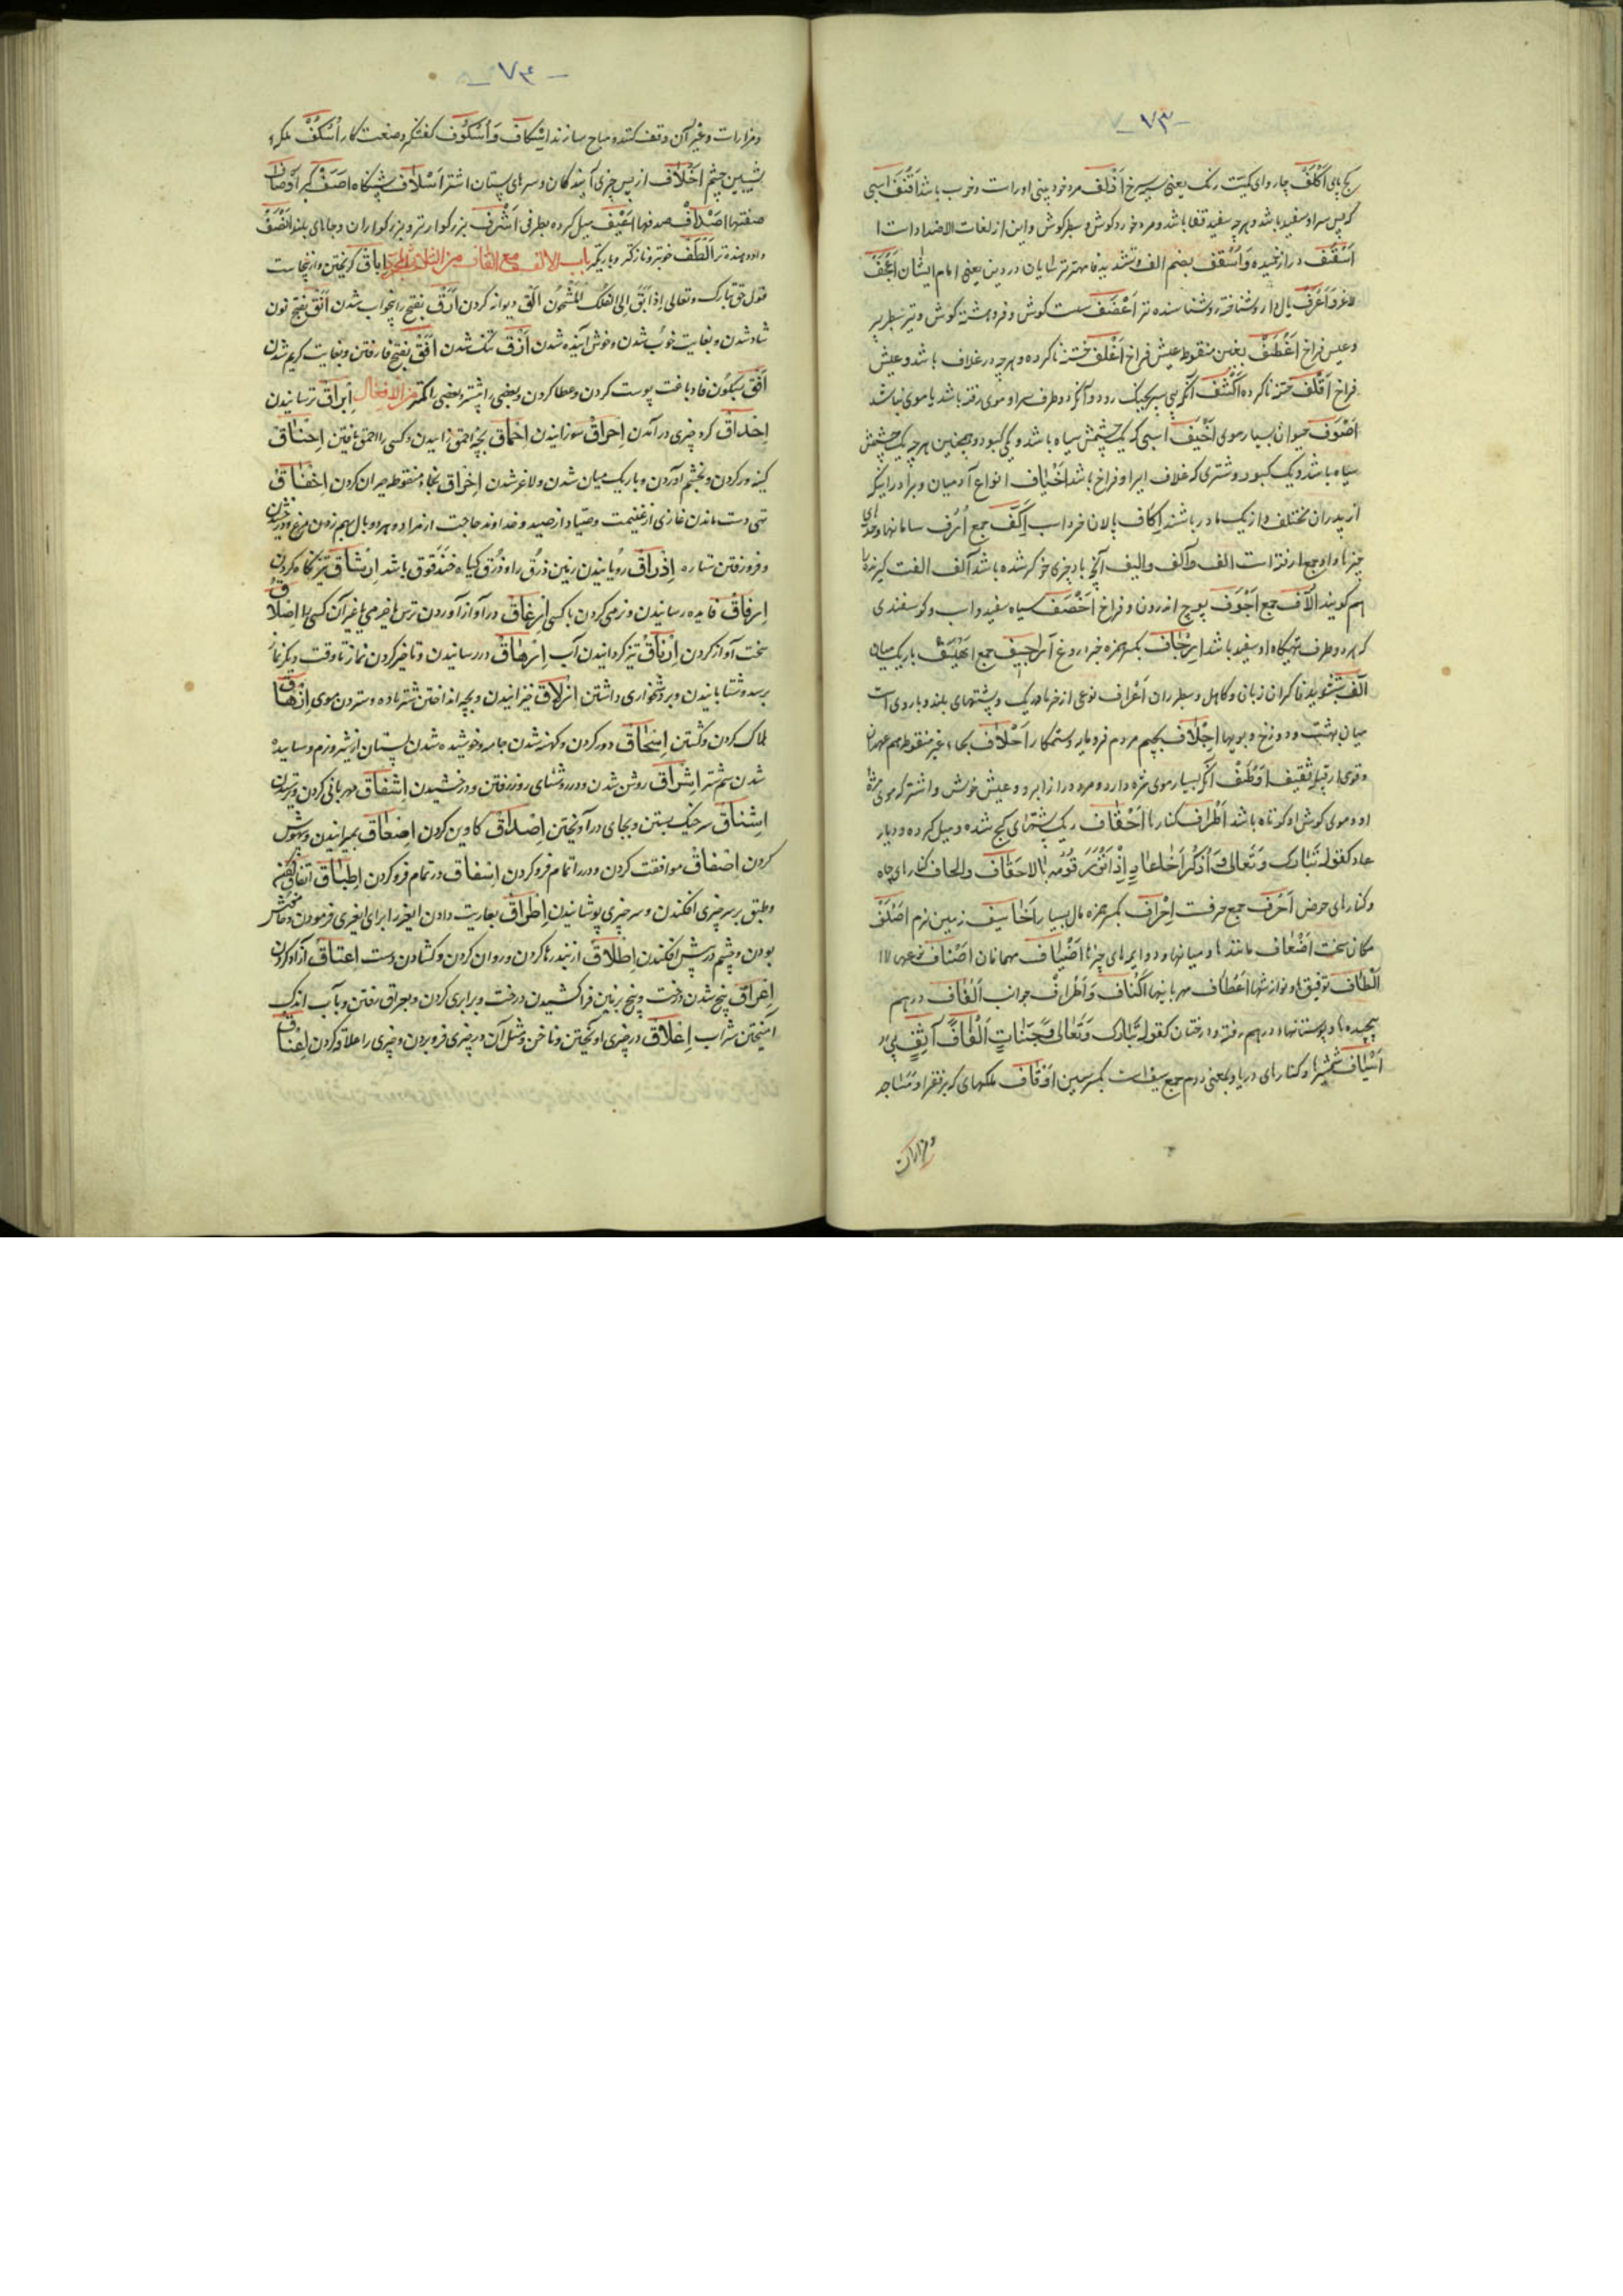 -٧٣-
کج پای اَکْلَفْ چاروای کمیت رنک یعنی سیه سرخ اَذْلَف مرد خورد بینی او راست و خوب باشد اَقْنَفْ اسبی
که پس سر او سفید باشد و هر چه سفید قفا باشد و مرد خورد کوش و سطبر کوش و این از لغات الاضداد است
اَسْقَف دراز خمیده وَ اُسْقُف بضم الف و تشدید فا مهتر ترسایان در دین یعنی امام ایشان اَعْجَفْ
لاغر وَ اَعْرَفْ یال دار و شناخته و شناسنده تر اَغْضَف سست کوش و فروهشته کوش و تیر سطبر پر
و عیش فراخ اَغْطَفْ بغین منقوط عیش فراخ اَغْلَف ختنه ناکرده و هر چه در غلاف باشد و عیش
فراخ اَقْلَف ختنه ناکرده اَکْشَف آنکه بی سپر بجنک رود و آنکه دو طرف سر او موی رفته باشد یا موی نباشد
اَصْوَف حیوان بسیار موی اَخْیَف اسبی که یک چشمش سیاه باشد و یکی کبود و همچنین هر چه یک چشمش
سیاه باشد و یک کبود و شتری که غلاف ایر او فراخ باشد اَخْیاف انواع آدمیان و برادر اینکه
از پدران مختلف و از یک مادر باشند اِکاف پالان خر داب اُکُفْ جمع اُرَف سامانها و حدهای
چیزها و او جمع ارفة است الف و آلف والیف آنچه با دیزی خو کر شده باشد آلف الفت کیرنده
هم کویند آلاّف جمع اَجْوَف پوچ اندرون و فراخ اَخْصَف سیاه سفید و اسب و کوسفندی
که هر دو طرف تهیکاه او سفید باشد اِرْجاف بکسر همزه خبر دروغ اَراجیف جمع اَهْیَف باریک میان
اَلَفّ بتشدید فا کران زبان و کاهل و سطبر ران اَعْراف نوعی از خرما و ریک و پشتهای بلند و باروی است
میان بهشت و دوزخ و بویها اَجْلاف بجیم مردم فرومایه و ستمکار اَحْلاف بحاء غیر منقوط هم عهدان
و قومی از قبیله ثقیف اَوْطَفْ آنکه بسیار موی مژه دارد و مرد دراز ابرو و عیش خوش و اشتر که موی مژه
او و موی کوش او کوتاه باشد اَطْراف کنارها اَحْقاف ریک پشتهای کج شده و میل کرده و دیار
عاد کقوله تَبٰارَک وَ تَعٰالیٰ وَ اذْکُرْ اَخٰا عٰادٍ اِذْ اَنْذَرَ قَوْمَهُ بِالاَحْقٰاف والجاف کنارهای چاه
و کنارهای حوض اَحْرُف جمع حرفت اِحْرٰاف بکسر همزه مال بسیار اَخٰاسیف زمین نرم اَصْلَفْ
مکان سخت اَضْعاف مانندها و میانها و دو برابرهای چیزها اَضْیٰاف مهمانان اَصْنٰاف نوعها
اَلْطٰاف توفیق ها و نوازشها اَعْطاف مهربانیها اَکْنٰاف وَ اَطْرٰاف جوانب اَلْفٰاف در هم
پیچیده ها و بوستانها و در هم رفته و درختان کقوله تبٰارک وَ تَعٰالیٰ وَ جَنّٰاتٍ اَلْفٰافاً
اَسْیٰاف شمشیرها و کنارهای دریا و بمعنی دوم جمع سیف است بکسر سین اَوْقٰاف ملکهای که بر فقرا و مساجد
و مزارات
-٧٤-
و مزارات و غیر آن وقف کنند و مباح سازند اِسْکاف وَ اُسْکُوف کفشکر و صنعت کار اُسْکُفْ
شیبین چشم اَخْلاف از پس چیزی آیندکان و سرهای پستان اشتر اَسْلاف پیشکاه اَصَفْ کبر اَوْصاف
صفتها اَصْداف صدفها اَعْیَف میل کرده بطرفی اَشْرٰاف بزرکوارتر و بزرکواران و جاهای بلند اَنْصَفْ
داد دهنده تر اَلْطَفْ خوبتر و نازکتر و باریکتر باب الالف مع القاف من الثلاثی المجرد اِباق کریختن و از اینجاست
قول حق تبارک و تعالی اِذْ اَبَقَ اِلَی الفُلکِ المَشْحُون اَلَق دیوانه کردن اَرَقْ بفتح را بیخواب شدن اَنَقْ بفتح نون
شاد شدن و بغایت خوب شدن و خوش آینده شدن اَزَق تنک شدن اَفَقْ بفتح فا رفتن و بغایت کریم شدن
اَفْق بسکون فا دباغت پوست کردن و عطا کردن و بعضی را بیشتر و بعضی را کمتر من الافعال اِبْراق ترسانیدن
اِحْداق کرد چیزی در آمدن اِحْراق سوزانیدن اِحْماق بچه احمق زاییدن و کسی را احمق یافتن اِحْناق
کینه ور کردن و بخشم آوردن و باریک میان شدن و لاغر شدن اِخْراق بخاء منقوط حیران کردن اِخْفٰاق
تهی دست ماندن غازی از غنیمت و صیاد از صید و خداوند حاجت از مراد و هر دو بال بهم زدن مرغ در وقت پریدن
و فرو رفتن ستاره اِذْراق رویانیدن زمین ذرق را و ذُرَق کیاه حندقوق باشد اِرْشاق تیز نکاه کردن
اِرْفاق فایده رسانیدن و نرمی کردن با کسی
سخت آواز کردن تیز کردانیدن آب اِرْهاق در رسانیدن و تاخیر کردن نماز تا وقت دیگر نماز
برسد و شتابانیدن و بر دشخواری داشتن اِزْلاق خیزانیدن و بچه انداختن شتر ماده و ستردن موی اِزْهٰاق
هلاک کردن و کشتن اِسْحاق دور کردن و کهنه شدن جامه و خوشیده شدن پستان از شیر و نرم و ساییده
شدن سم شتر اِشْراق روشن شدن و در روشنای روز رفتن و درخشیدن اِشْفاق مهربانی کردن و ترسیدن
اِشْناق سر خیک بستن و بجای در آویختن اِصْداق کاوین کردن اِصْعاق بمیرانیدن و بیهوش
کردن اِصْفاق موافقت کردن و در را تمام فرو کردن اِطْباق
و طبق بر سر چیزی افکندن و سر چیزی پوشانیدن اِطْراق بعاریت دادن و خاموش
بودن و چشم در پیش افکندن اِطْلاق از بند رها کردن و روان کردن و کشادن دست اِعتاق آزاد کردن
اِعْراق بیخ شدن درخت و بیخ بزمین فرا کشیدن درخت و برابری کردن و بعراق رفتن و بآب اندک
آمیختن شراب اِعْلاق در چیزی آویختن و ناخن و مثل آن در چیزی فرو بردن و چیزی را علاقه کردن اِعْناق